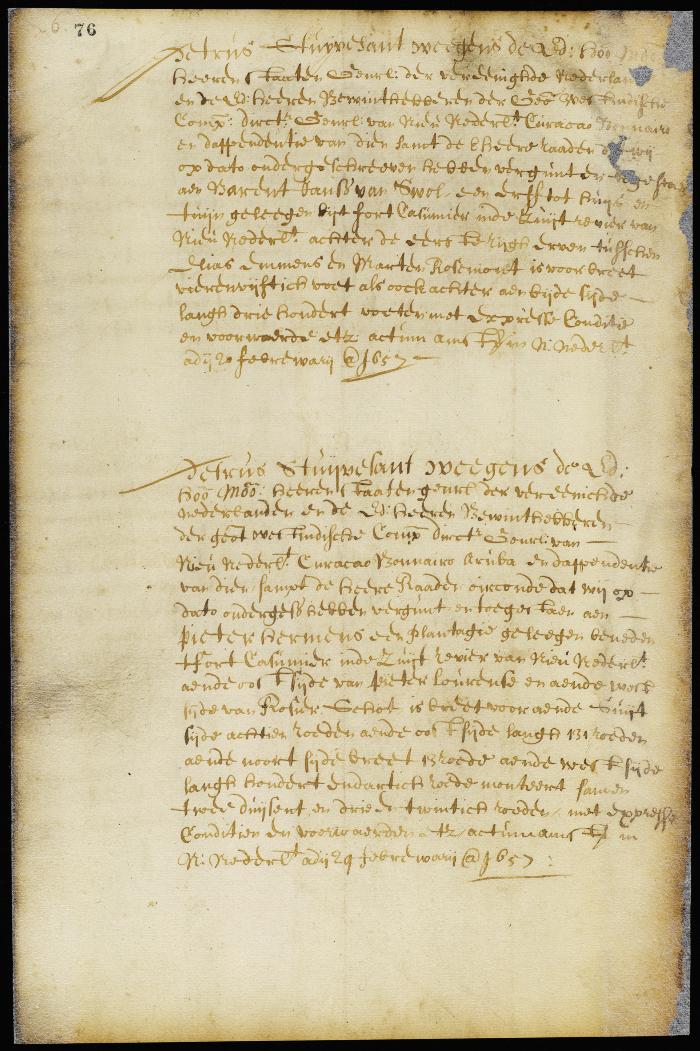 76
Petrus Stuyvesant weegens de Ed: hoo
heeren Staaten Genrl: der vereenighde Nederlan
en de Ed: heeren Bewinthebberen der Geo: West Indische
Comp: directr Genrl: van Nieu Nederlt Curacao Bonnairo
en dappendentie van dien samt de heere raaden dat wij
op dato ondergeschreeven hebben vergunt en toegestaen
aen Barent Jansz van Swol een erff tot huijs en
tuijn geleegen bijt fort Casimier inde Zuijt revier van
Nieu Nederlt achter de eerste rijgh erven tusschen
Elias Emmens en Marten Rosemont is voor breet
vierenvijftich voet als oock achter aen bijde sijde
langh drie hondert voeten met Expresse Conditie
en voorwaerde etz actum amst in N: Nederlt
adij 20 febrewarij @ 1657
Petrus Stuijvesant weegens de Ed:
hoo Moo: heeren Staaten genrl der vereenichde
nederlanden en de Ed: heeren Bewinthebberen
der geot west Indische Comp directr Genrl: van
Nieu Nederlt Curacao Bonnairo Aruba en dappendentie
van dien sampt de heere Raaden oirconde dat wij op
dato ondergess hebben vergunt en toegestaen aen
Pieter hermens een plantagie geleegen beneden
t fort Casimier inde Zuijt revier van Nieu Nederlt
aende oost sijde van pieter lourense en aende west
sijde van Rosier Schot is breet voor aende Suijt
sijde achtien roeden aende oost sijde langh 131 roeden
aende noort sijde breet 13 roede aende west sijde
langh hondert en dartich roede monteert samen
twee duijsent en drie en twintich roeden met expresse
Conditien en voorwaerden etz actum amst in
N: Nederlt adij 29 febrewarij @ 1657